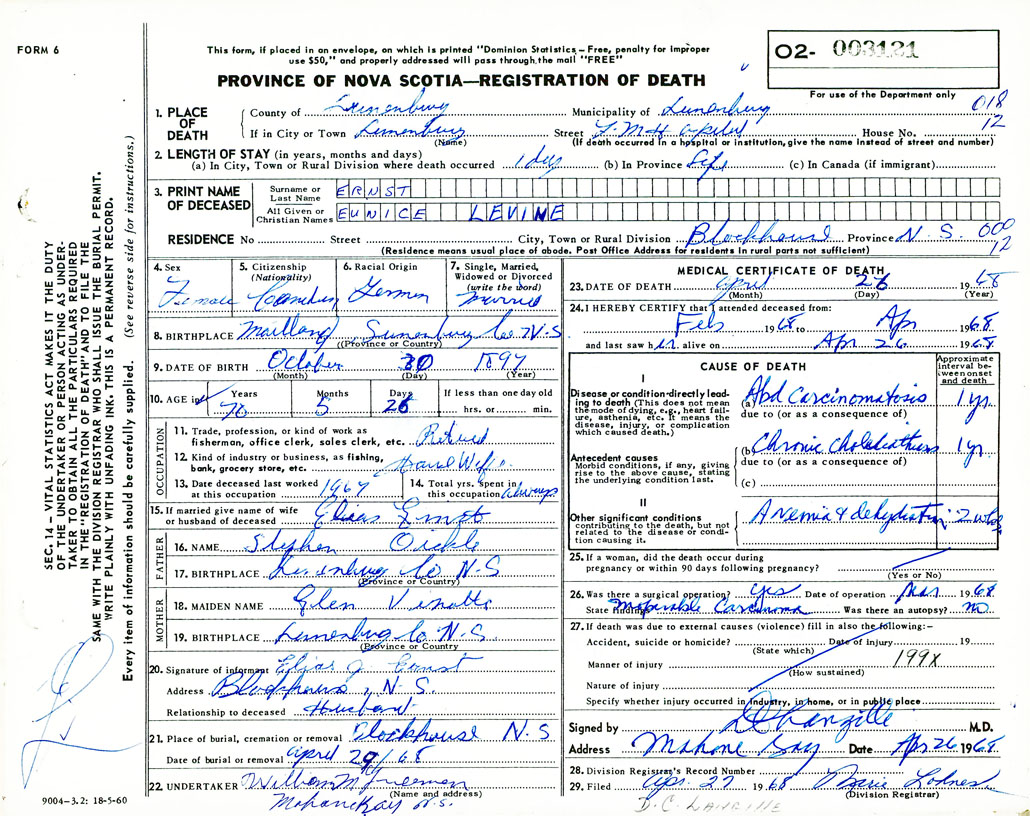 FORM 6
This form, if placed in an envelope, on which is printed "Dominion Statistics – Free, penalty for improper
use $50," and properly addressed will pass through the mail "FREE"
O2- 003121
PROVINCE OF NOVA SCOTIA—REGISTRATION OF DEATH
For use of the Department only
1. PLACE OF DEATH
County of Lunenburg Municipality of Lunenburg 018
If in City or Town Lunenburg Street F. M. Hospital House No. 12
(Name) (If death occurred in a hospital or institution, give the name instead of street and number)
2. LENGTH OF STAY (in years, months and days)
(a) In City, Town or Rural Division where death occurred 1 day (b) In Province Life (c) In Canada (if immigrant)
3. PRINT NAME OF DECEASED
Surname or Last Name ERNST
All Given or Christian Names EUNICE LEVINE
RESIDENCE No Street City, Town or Rural Division Blockhouse Province N. S. 000
12
(Residence means usual place of abode. Post Office Address for residents in rural parts not sufficient)
4. Sex Female
5. Citizenship (Nationality)
6. Racial Origin German
7. Single, Married, Widowed or Divorced (write the word) Married
8. BIRTHPLACE Maitland Lunenburg Co. N.S
(Province or Country)
9. DATE OF BIRTH October 30 1897
(Month) (Day) (Year)
10. AGE in Years Months Days If less than one day old
70 5 26 hrs. or min.
OCCUPATION
11. Trade, profession, or kind of work as
fisherman, office clerk, sales clerk, etc. Retired
12. Kind of industry or business, as fishing,
bank, grocery store, etc. House Wife
13. Date deceased last worked at this occupation 1967
14. Total yrs. spent in this occupation always
15. If married give name of wife
or husband of deceased Elias Ernst
FATHER
16. NAME Stephen Oickle
17. BIRTHPLACE Lunenburg Co N.S
(Province or Country)
MOTHER
18. MAIDEN NAME Elen
19. BIRTHPLACE Lunenburg Co N.S.
(Province or Country
20. Signature of informant Elias J Ernst
Address Blockhouse, N. S.
Relationship to deceased Husband
21. Place of burial, cremation or removal Blockhouse N. S
Date of burial or removal April 29/68
22. UNDERTAKER William M Freeman
(Name and address)
Mahone Bay N.S.
MEDICAL CERTIFICATE OF DEATH
23. DATE OF DEATH April 26 1968
(Month) (Day) (Year)
24. I HEREBY CERTIFY that I attended deceased from:
Feb 1968 to Apr 1968
and last saw her alive on Apr 26 1968
CAUSE OF DEATH
Approximate interval between onset and death
I
Disease or condition directly leading to death (This does not mean the mode of dying, e.g., heart failure, asthenia, etc. It means the disease, injury, or complication which caused death.)
(a) Abd Carcinomatosis 1 yr.
due to (or as a consequence of)
Antecedent causes
Morbid conditions, if any, giving rise to the above cause, stating the underlying condition last.
(b) Chronic Cholelithiasis 1 yr
due to (or as a consequence of)
(c)
II
Other significant conditions
contributing to the death, but not related to the disease or condition causing it.
Anemia & dehydration 2 wks
25. If a woman, did the death occur during
pregnancy or within 90 days following pregnancy?
(Yes or No)
26. Was there a surgical operation? Yes Date of operation Mar 1968
State findings Inoperable Carcinoma Was there an autopsy? no
27. If death was due to external causes (violence) fill in also the following:—
Accident, suicide or homicide? Date of injury 19
(State which)
Manner of injury 199X
(How sustained)
Nature of injury
Specify whether injury occurred in industry, in home, or in public place
Signed by M.D.
Address Mahone Bay Date Apr 26 1968
28. Division Registrar's Record Number
29. Filed Apr. 27 1968 Marie Lohnes
(Division Registrar)
SEC. 14 – VITAL STATISTICS ACT MAKES IT THE DUTY
OF THE UNDERTAKER OR PERSON ACTING AS UNDERTAKER TO OBTAIN ALL THE PARTICULARS REQUIRED
IN THE "REGISTRATION OF DEATH" AND TO FILE THE
SAME WITH THE DIVISION REGISTRAR WHO SHALL ISSUE THE BURIAL PERMIT.
WRITE PLAINLY WITH UNFADING INK. THIS IS A PERMANENT RECORD.
Every item of information should be carefully supplied. (See reverse side for instructions.)
9004–3.2: 18-5-60